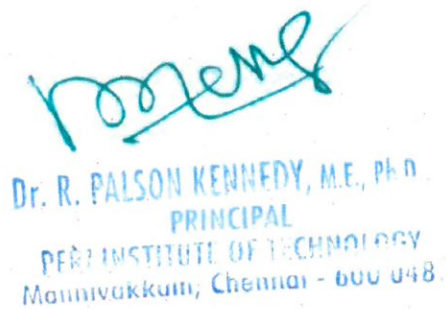 Dr. R. PALSON KENNEDY, M.E., Ph.D
PRINCIPAL
PERI INSTITUTE OF TECHNOLOGY
Mannivakkum, Chennai - 600 048.